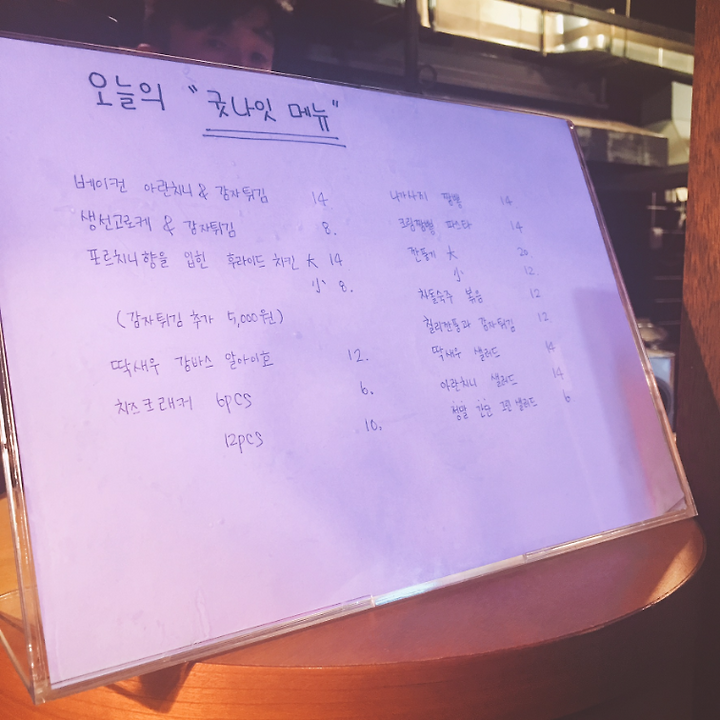 오늘의 "굿나잇 메뉴"
베이컨 아란치니 & 감자튀김 14
생선고로케 & 감자튀김 8.
포르치니향을 입힌 후라이드 치킨 大 14
小 8.
(감자튀김 추가 5,000원)
딱새우 감바스 알아이호 12.
치즈크래커 6pcs 6.
12pcs 10.
나가사키 짬뽕 14
크림짬뽕 파스타 14
大 20
小 12
차돌숙주 볶음 12
감자튀김 12
딱새우 샐러드 14
아란치니 샐러드 14
정말 간단 그린샐러드 6